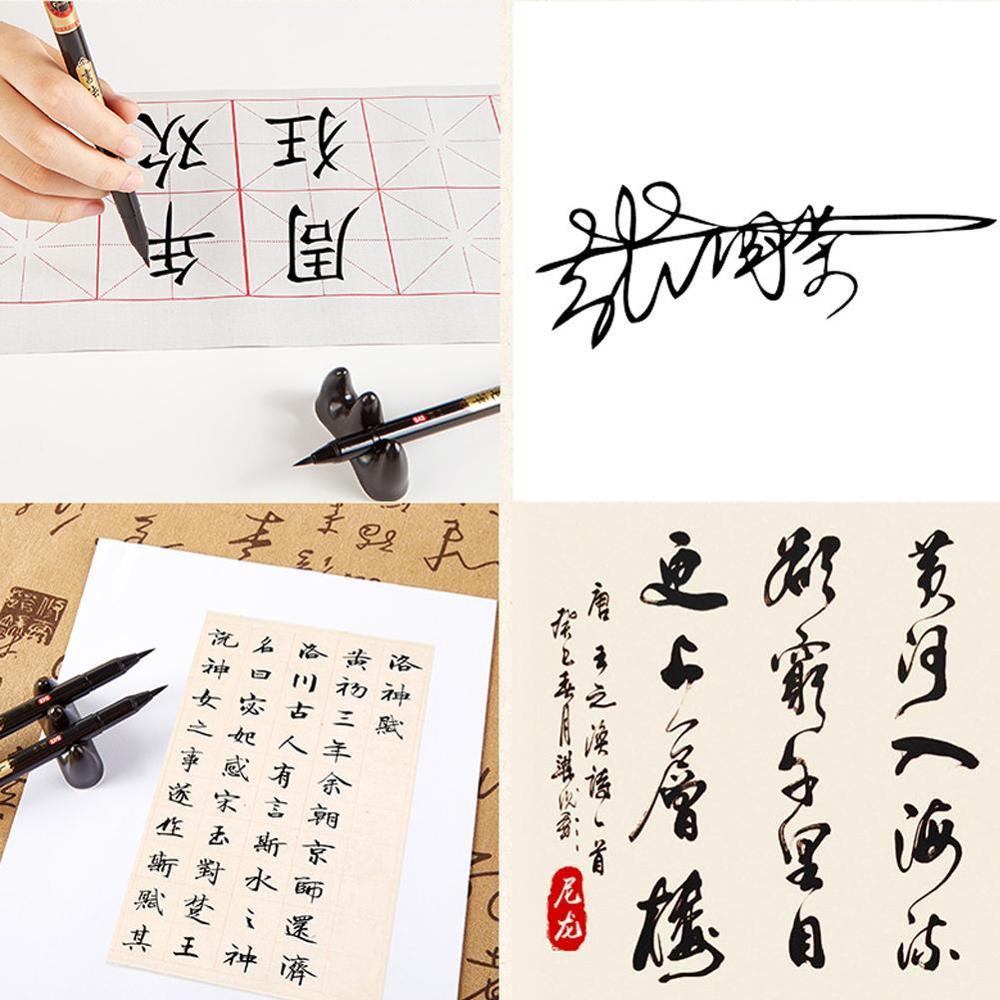 周年
狂欢
洛神賦
黄初三年余朝京師還濟
洛川古人有言斯水之神
名曰宓妃感宋玉對楚王
説神女之事遂作斯賦其
黄河入海流
欲窮千里目
更上一層樓
唐王之渙詩一首
癸巳春月
尼龙